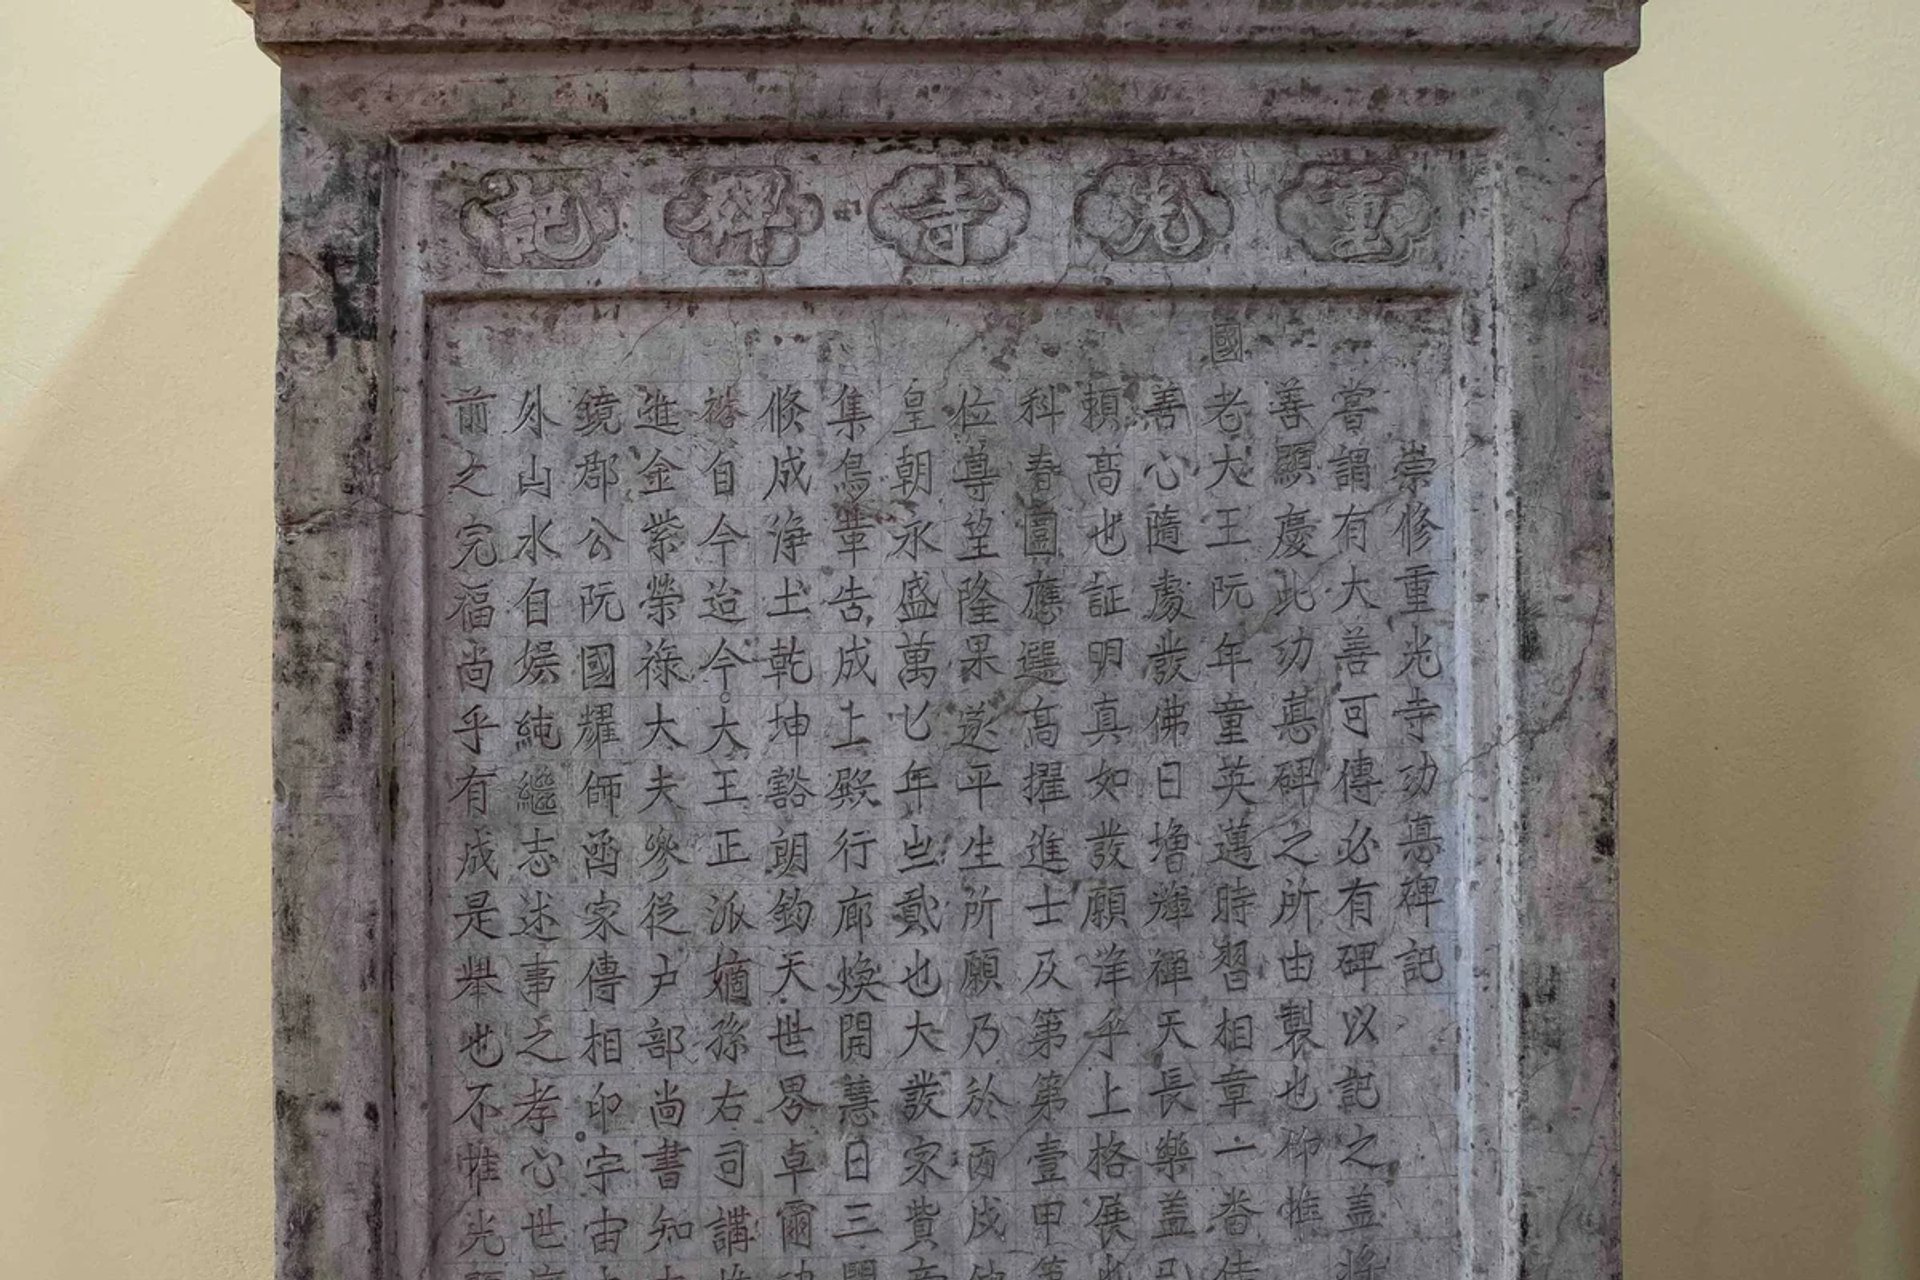 重光寺碑記
崇修重光寺功惪碑記
嘗謂有大善可傳必有碑以記之蓋將
善顯慶此功惪碑之所由製也仰惟
國老大王阮年童英邁時習相章一畨佳
善心隨處發佛日增輝禪天長樂盖已
頼髙也証明真如發願洋乎上格展
科春圍應選髙擢進士及第第壹甲第
位尊望隆果遂平生所願乃於丙戌
皇朝永盛萬乜年岀貳也大發家貲
集鳥革告成上殿行廊煥開慧日三關
倐成浄土乾坤豁朗鈞天世界卓爾
裕自今迨今大王正派嫡孫右司講
進金紫榮祿大夫參從户部尚書知
鏡郡公阮國耀師凾家傳相印宇宙
外山水自娱純繼志述事之孝心世
前之完福尚乎有成是举也不惟光